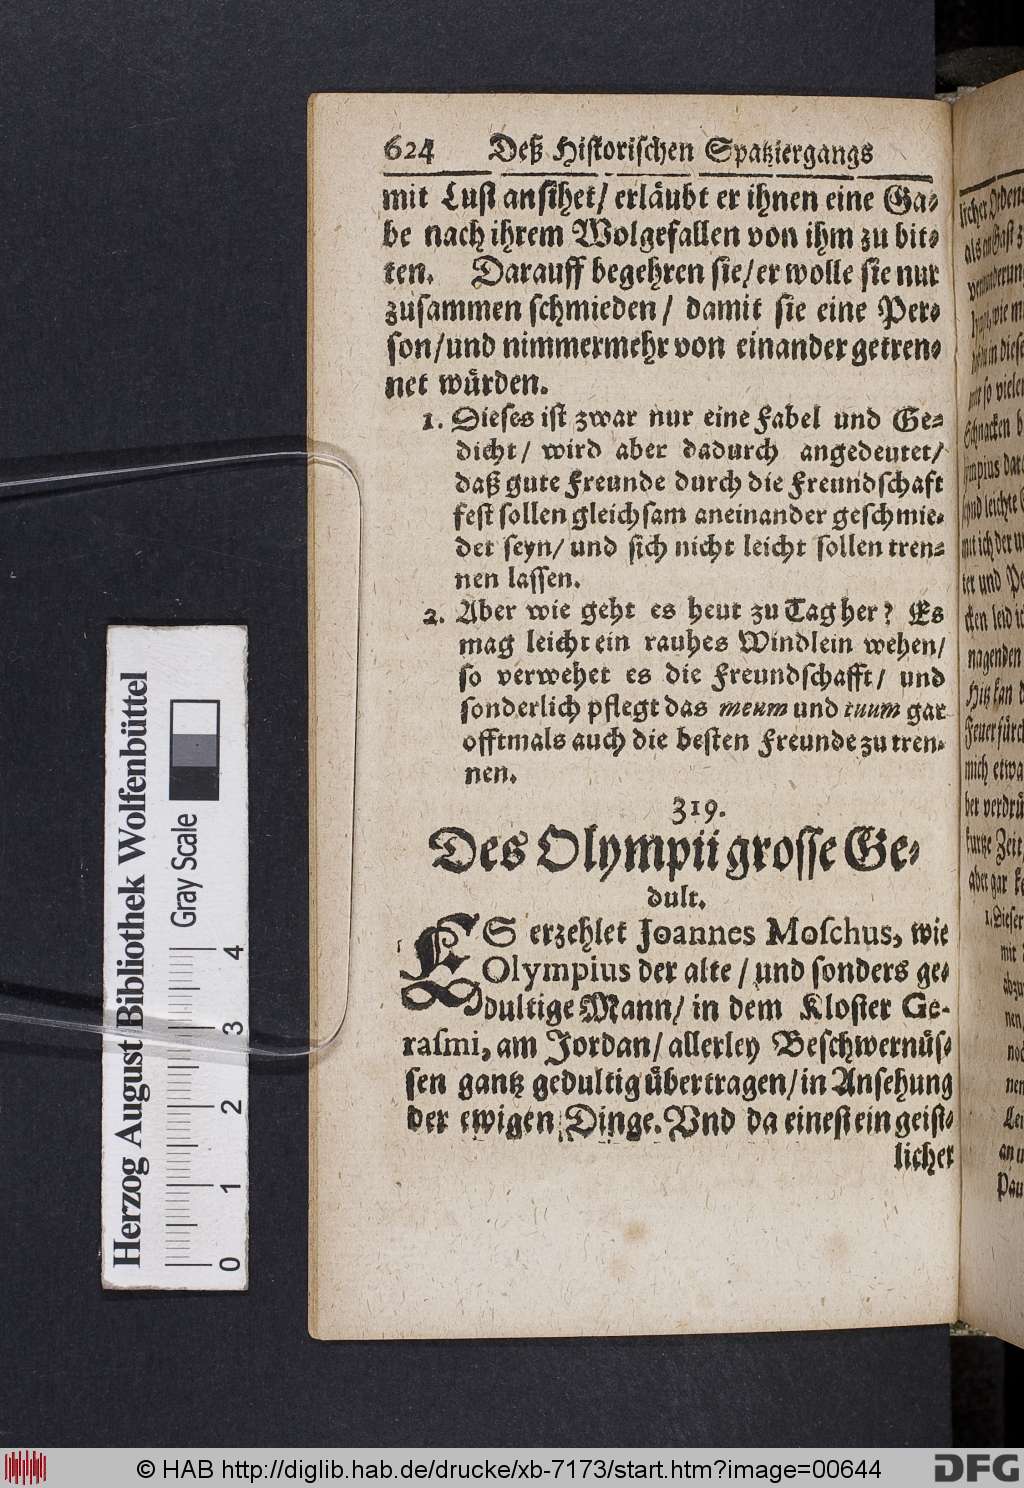 624 Deß Historischen Spatziergangs
mit Lust ansihet/ erläubt er ihnen eine Ga-
be nach ihrem Wolgefallen von ihm zu bit-
ten. Darauff begehren sie/ er wolle sie nur
zusammen schmieden/ damit sie eine Per-
son/ und nimmermehr von einander getren-
net würden.
1. Dieses ist zwar nur eine Fabel und Ge-
dicht/ wird aber dadurch angedeutet/
daß gute Freunde durch die Freundschaft
fest sollen gleichsam aneinander geschmie-
det seyn/ und sich nicht leicht sollen tren-
nen lassen.
2. Aber wie geht es heut zu Tag her? Es
mag leicht ein rauhes Windlein wehen/
so verwehet es die Freundschafft/ und
sonderlich pflegt das meum und tuum gar
offtmals auch die besten Freunde zu tren-
nen.
319.
Des Olympii grosse Ge-
dult.
ES erzehlet Joannes Moschus, wie
Olympius der alte/ und sonders ge-
dultige Mann/ in dem Kloster Ge-
rasmi, am Jordan/ allerley Beschwernüs-
sen gantz gedultig übertragen/ in Ansehung
der ewigen Dinge. Vnd da einest ein geist-
licher
licher Ordens
als ein Gast z
verwunderun
wie m
in diese
so vielen
Schnacken
leichte
mit ich der
ter und
cken leid
nagenden
Hitz kan
Feuer fürch
mich etwa
ber verdrü
kurtze Zeit
aber gar
1. Dieser
mit
nen
an
Pau
Herzog August Bibliothek Wolfenbüttel
Gray Scale
0 1 2 3 4
© HAB http://diglib.hab.de/drucke/xb-7173/start.htm?image=00644
DFG